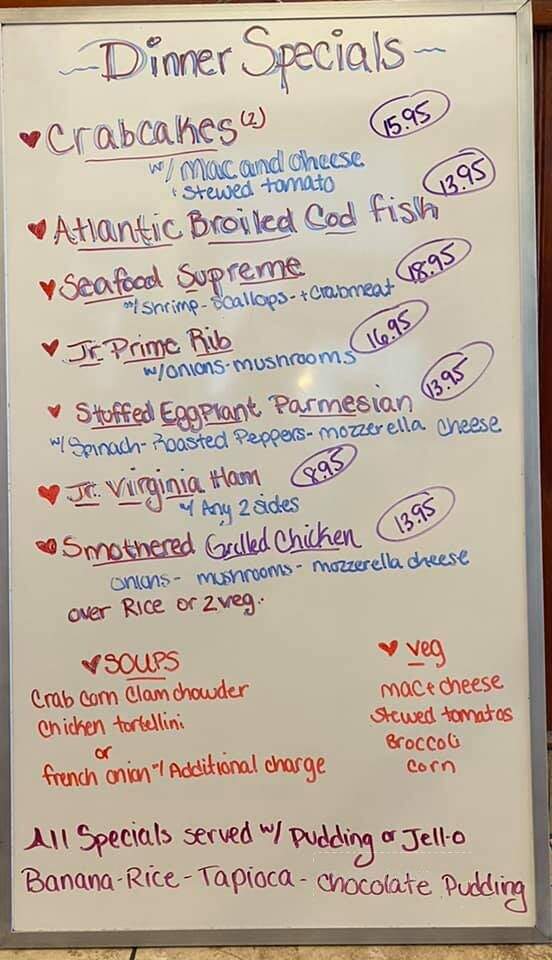 Dinner Specials
Crabcakes (2) 15.95
w/ Mac and cheese
+ stewed tomato
Atlantic Broiled Cod fish 13.95
Seafood Supreme 18.95
w/ Shrimp - Scallops - + Crabmeat
Jr. Prime Rib 16.95
w/ onions - mushrooms
Stuffed Eggplant Parmesian 13.95
w/ Spinach - Roasted Peppers - mozzerella cheese
Jr. Virginia Ham 8.95
w/ Any 2 sides
Smothered Grilled Chicken 13.95
onions - mushrooms - mozzerella cheese
over Rice or 2 veg.
Soups
Crab Corn Clam chowder
Chicken tortellini
or
french onion w/ Additional charge
veg
mac + cheese
Stewed tomatos
Broccoli
Corn
All Specials served w/ pudding or Jell-o
Banana - Rice - Tapioca - Chocolate Pudding